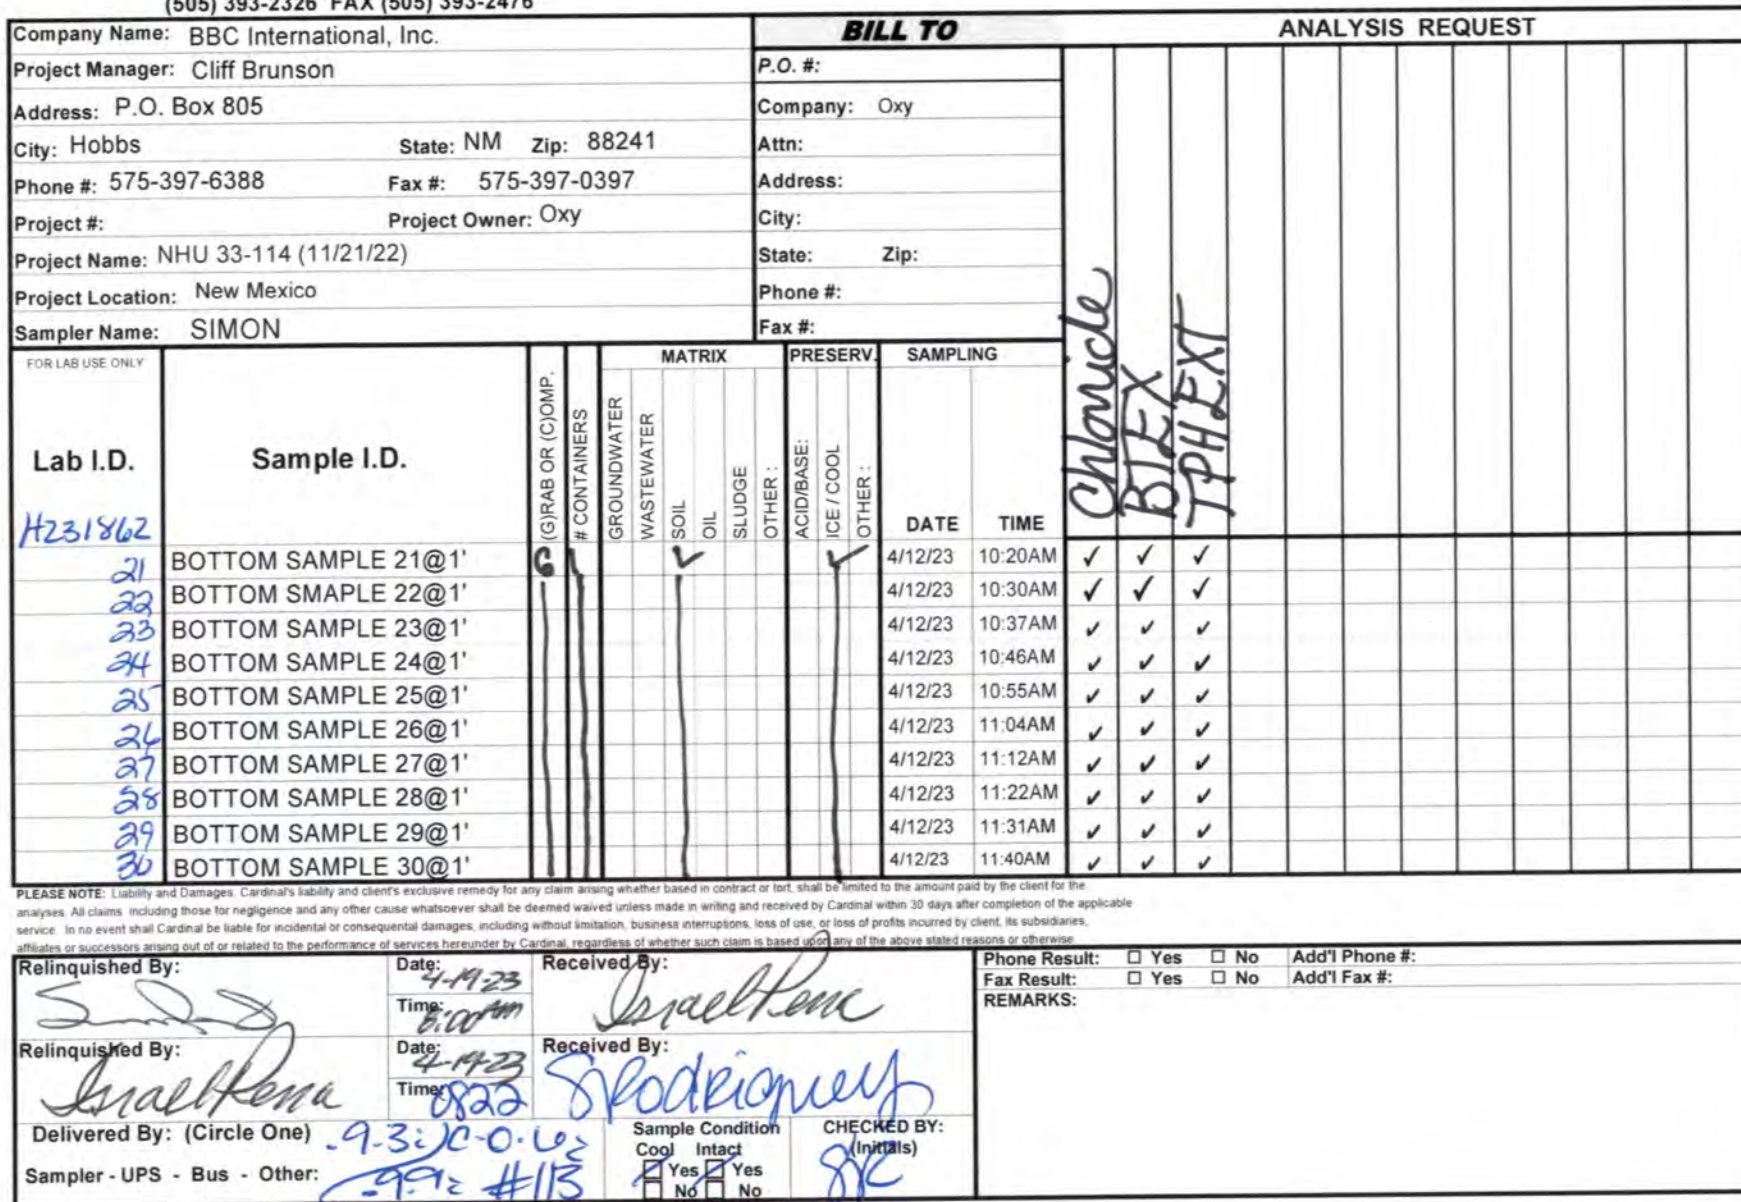 (505) 393-2326 FAX (505) 393-2476
Company Name: BBC International, Inc.
BILL TO
ANALYSIS REQUEST
Project Manager: Cliff Brunson
P.O. #:
Address: P.O. Box 805
Company: Oxy
City: Hobbs State: NM Zip: 88241
Attn:
Phone #: 575-397-6388 Fax #: 575-397-0397
Address:
Project #: Project Owner: Oxy
City:
Project Name: NHU 33-114 (11/21/22)
State: Zip:
Project Location: New Mexico
Phone #:
Sampler Name: SIMON
Fax #:
FOR LAB USE ONLY
MATRIX PRESERV. SAMPLING
Lab I.D. Sample I.D. (G)RAB OR (C)OMP. # CONTAINERS GROUNDWATER WASTEWATER SOIL OIL SLUDGE OTHER : ACID/BASE: ICE / COOL OTHER : DATE TIME Chloride BTEX TPH EXT
H231862
21 BOTTOM SAMPLE 21@1' G 1 ✓ ✓ 4/12/23 10:20AM ✓ ✓ ✓
22 BOTTOM SMAPLE 22@1' 4/12/23 10:30AM ✓ ✓ ✓
23 BOTTOM SAMPLE 23@1' 4/12/23 10:37AM ✓ ✓ ✓
24 BOTTOM SAMPLE 24@1' 4/12/23 10:46AM ✓ ✓ ✓
25 BOTTOM SAMPLE 25@1' 4/12/23 10:55AM ✓ ✓ ✓
26 BOTTOM SAMPLE 26@1' 4/12/23 11:04AM ✓ ✓ ✓
27 BOTTOM SAMPLE 27@1' 4/12/23 11:12AM ✓ ✓ ✓
28 BOTTOM SAMPLE 28@1' 4/12/23 11:22AM ✓ ✓ ✓
29 BOTTOM SAMPLE 29@1' 4/12/23 11:31AM ✓ ✓ ✓
30 BOTTOM SAMPLE 30@1' 4/12/23 11:40AM ✓ ✓ ✓
PLEASE NOTE: Liability and Damages. Cardinal's liability and client's exclusive remedy for any claim arising whether based in contract or tort, shall be limited to the amount paid by the client for the
analyses. All claims including those for negligence and any other cause whatsoever shall be deemed waived unless made in writing and received by Cardinal within 30 days after completion of the applicable
service. In no event shall Cardinal be liable for incidental or consequental damages, including without limitation, business interruptions, loss of use, or loss of profits incurred by client, its subsidiaries,
affiliates or successors arising out of or related to the performance of services hereunder by Cardinal, regardless of whether such claim is based upon any of the above stated reasons or otherwise.
Relinquished By: Date: Received By: Israel Pena
Time:
Phone Result: Yes No Add'l Phone #:
Fax Result: Yes No Add'l Fax #:
REMARKS:
Relinquished By: Israel Pena Date: Received By: SRodriguez
Time: 0822
Delivered By: (Circle One)
Sampler - UPS - Bus - Other: #113
Sample Condition
Cool Intact
Yes Yes
No No
CHECKED BY:
(Initials)